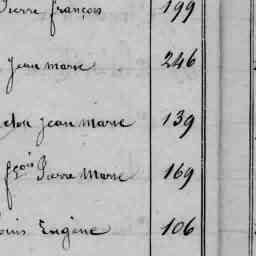 Pierre françois 199
Jean marie 246
Jean Marie 139
fçois Pierre Marie 169
Louis Eugène 106